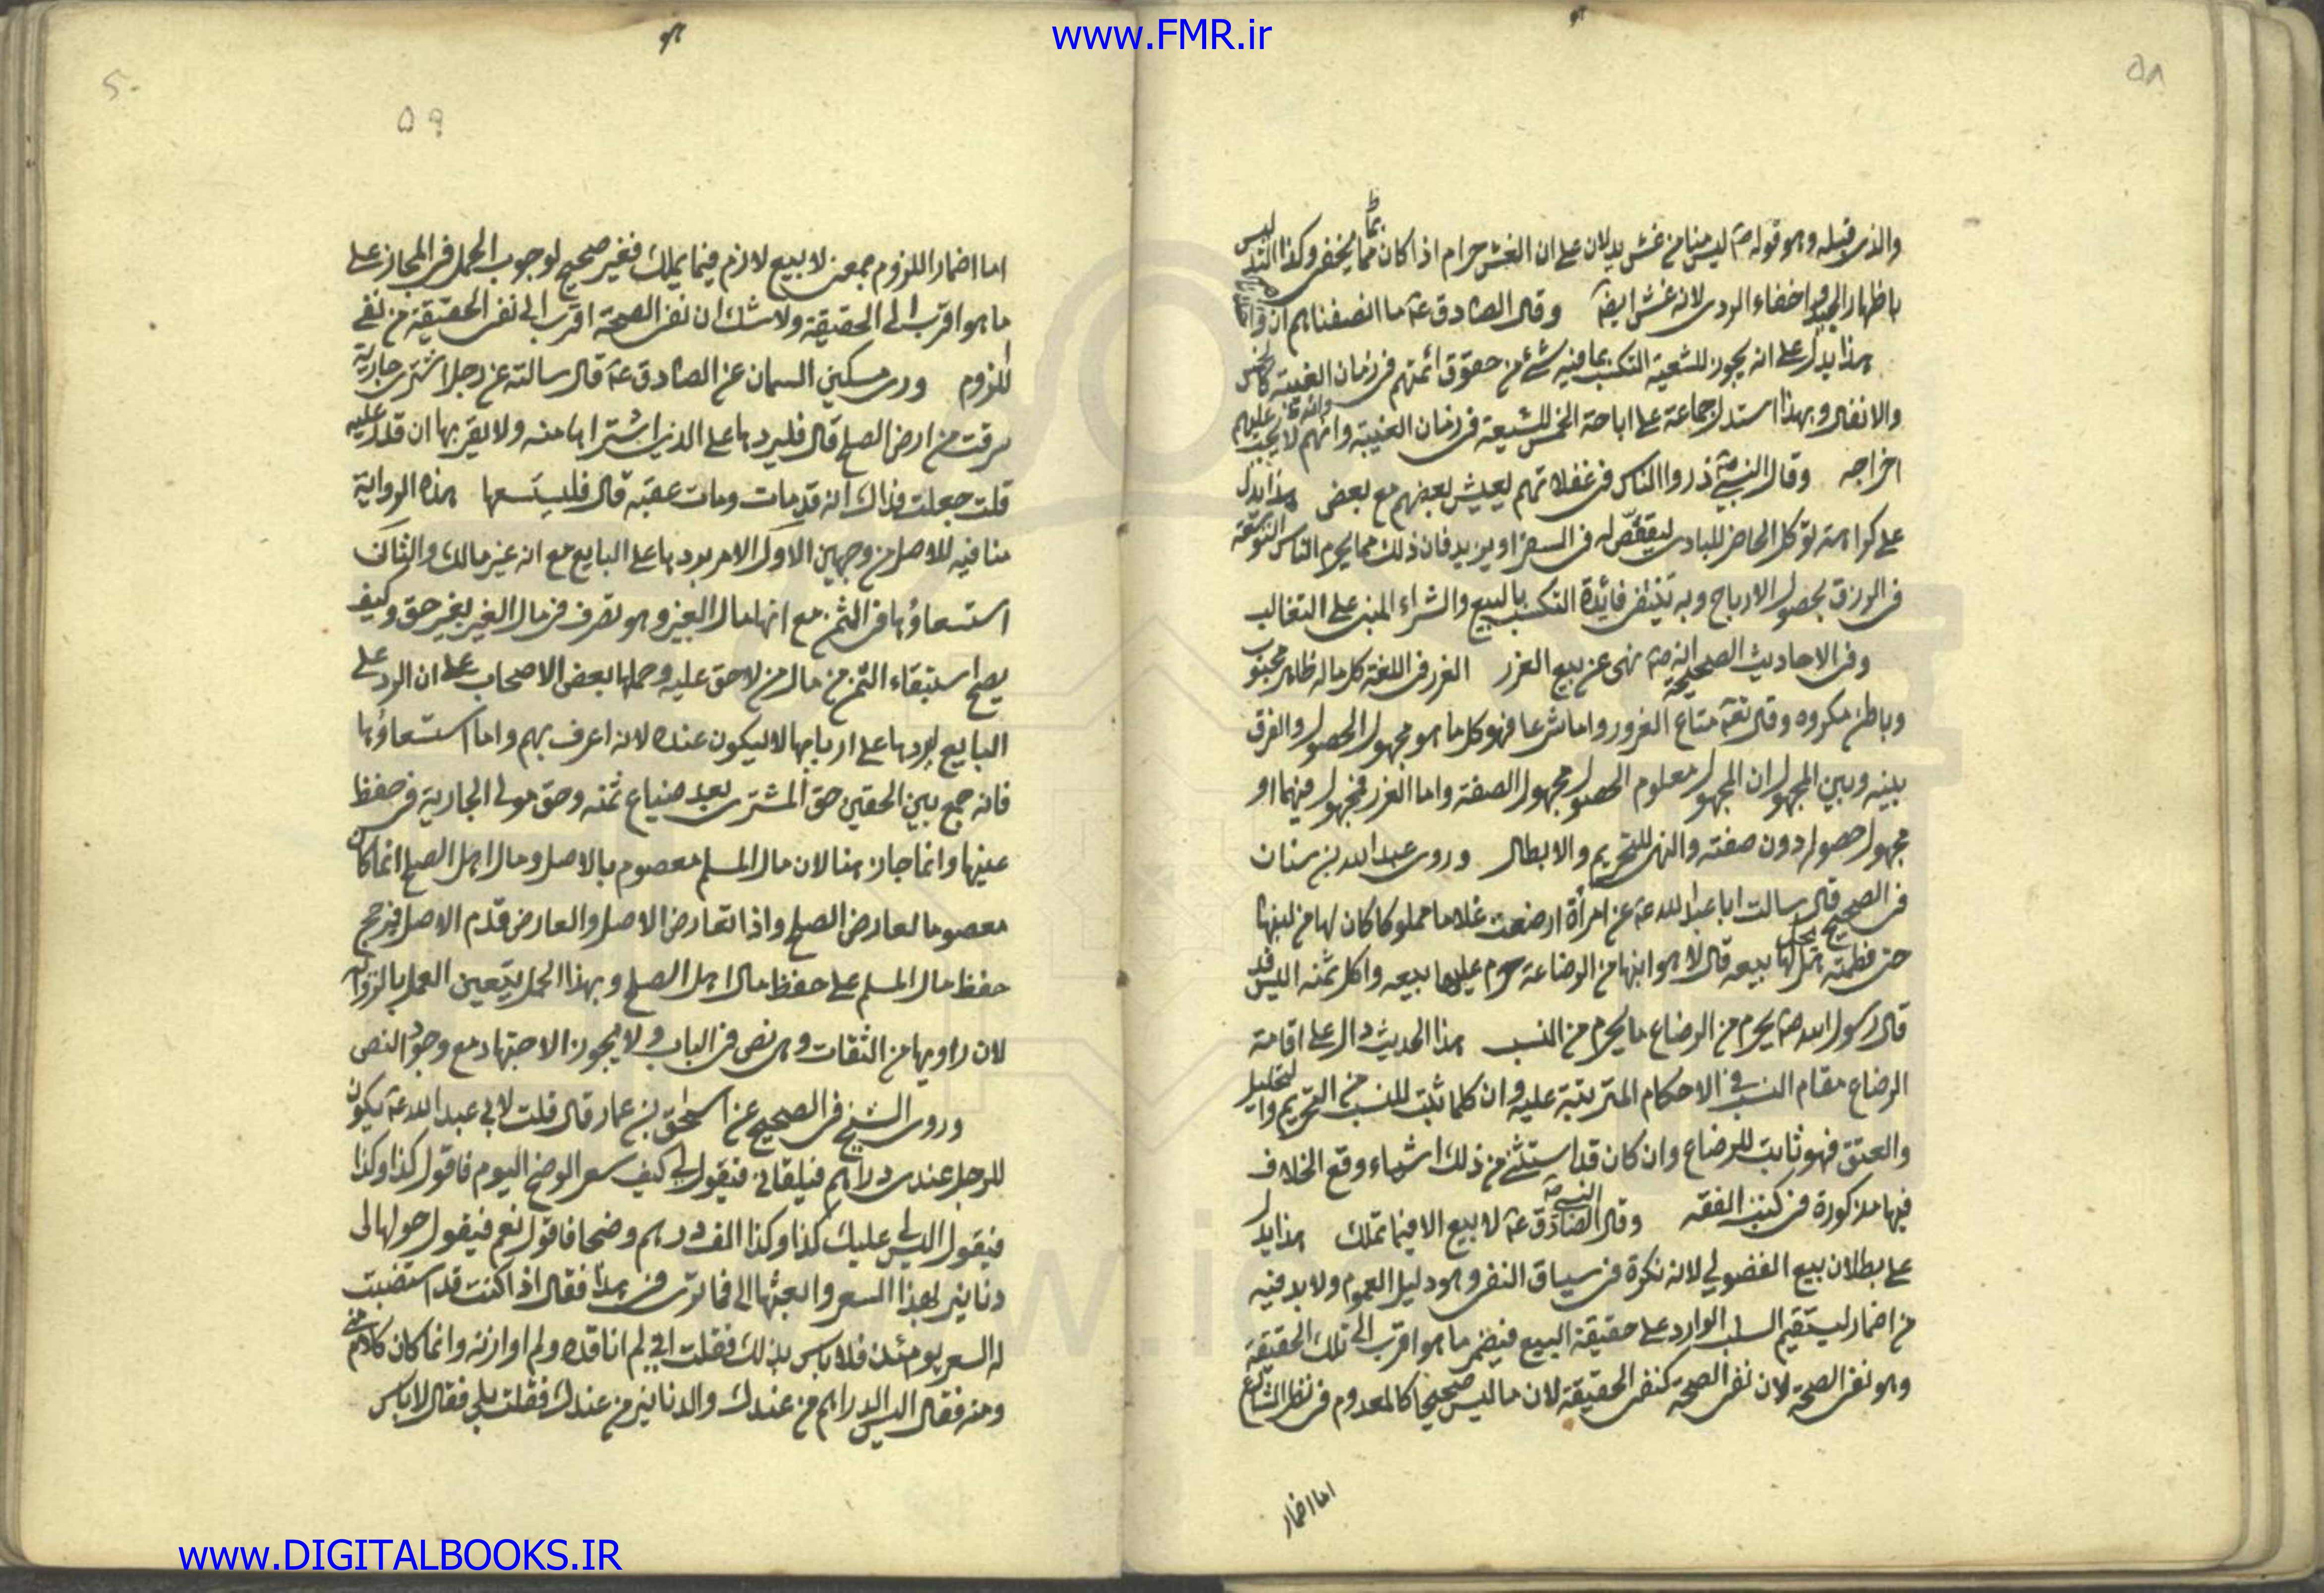 www.FMR.ir
٥٨
والذى قبله وهو قوله ص ليس منا من غش يدلان على ان الغش حرام اذا كان مما يخفى وكذا التدليس
باظهار الجيد واخفاء الردى لانه غش ايضا وقال الصادق ع ما انصفناهم ان
هذا يدل على انه يجوز للشيعة التكسب بما فيه شئ من حقوق ائمتهم فى زمان الغيبة كالخمس
والانفال وبهذا استدل جماعة على اباحة الخمس للشيعة فى زمان الغيبة وانهم لا يجب عليهم
اخراجه وقال النبى ص ذروا الناس فى غفلاتهم يعيش بعضهم مع بعض هذا يدل
على كراهة توكل الحاضر للبادى لينقص له فى السعر او يزيد فان ذلك مما يحرم الناس التوسعة
فى الرزق بحصول الارباح وبه تنتفى فائدة التكسب بالبيع والشراء المبنى على التغالب
وفى الاحاديث الصحيحة انه ص نهى عن بيع الغرر الغرر فى اللغة كل ما له ظاهر محبوب
وباطن مكروه وقال تعه متاع الغرور واما شرعا فهو كل ما هو مجهول الحصول والفرق
بينه وبين المجهول ان المجهول معلوم الحصول مجهول الصفة واما الغرر فمجهول فيهما او
مجهول حصوله دون صفته والنهى للتحريم والابطال وروى عبد الله بن سنان
فى الصحيح قال سالت ابا عبد الله ع عن امرأة ارضعت غلاما مملوكا كان لها من لبنها
حتى فطمته هل يحل لها بيعه قال لا هو ابنها من الرضاعة حرم عليها بيعه واكل ثمنه اليس قد
قال رسول الله ص يحرم من الرضاع ما يحرم من النسب هذا الحديث دال على اقامة
الرضاع مقام النسب فى الاحكام المترتبة عليه وان كلما ثبت للنسب من التحريم والتحليل
والعتق فهو ثابت للرضاع وان كان قد استثنى من ذلك اشياء وقع الخلاف
فيها مذكورة فى كتب الفقه وقال الصادق ع لا بيع الا فيما تملك هذا يدل
على بطلان بيع الفضولي لانه نكرة فى سياق النفى وهو دليل العموم ولا بد فيه
من اضمار ليستقيم السلب الوارد على حقيقة البيع فيضمر ما هو اقرب الى تلك الحقيقة
وهو نفى الصحة لان نفى الصحة كنفى الحقيقة لان ما ليس صحيحا كالمعدوم فى نظر الشارع
اما اضمار
٥٩
اما اضمار اللزوم بمعنى لا بيع لازم فيما يملك فغير صحيح لوجوب الحمل فى المجاز على
ما هو اقرب الى الحقيقة ولا شك ان نفى الصحة اقرب الى نفى الحقيقة من نفى
اللزوم وروى مسكين السمان عن الصادق ع قال سالته عن رجل اشترى جارية
سرقت من ارض الصلح قال فليردها على الذى اشتراها منه ولا يقربها ان قدر عليه
قلت جعلت فداك انه قد مات ومات عقبه قال فليستسعها هذه الرواية
منافيه للاصل من وجهين الاول الامر بردها على البايع مع انه غير مالك والثانى
استسعاؤها فى الثمن مع انها مال الغير وهو تصرف فى مال الغير بغير حق وكيف
يصح استبقاء الثمن من مال من لا حق عليه وحملها بعض الاصحاب على ان الرد على
البايع ليردها على اربابها لا ليكون عنده لانه اعرف بهم واما استسعاؤها
فانه جمع بين الحقين حق المشترى بعد ضياع ثمنه وحق مولى الجارية فى حفظ
عينها وانما جاز هنا لان مال المسلم معصوم بالاصل ومال اهل الصلح انما كان
معصوما لعارض الصلح واذا تعارض الاصل والعارض قدم الاصل فيرجح
حفظ مال المسلم على حفظ مال اهل الصلح وبهذا الحمل يتعين العمل بالرواية
لان راويها من الثقات وهى نص فى الباب ولا يجوز الاجتهاد مع وجود النص
وروى الشيخ فى الصحيح عن اسحق بن عمار قال قلت لابى عبد الله ع يكون
للرجل عندى دراهم فيلقانى فيقول لى كيف سعر الوضح اليوم فاقول كذا وكذا
فيقول اليس لى عليك كذا وكذا الف درهم وضحا فاقول نعم فيقول حولها لى
دنانير بهذا السعر واثبتها لى فما ترى فى هذا فقال اذا كنت قد استقصيت
له السعر يومئذ فلا باس بذلك فقلت انى لم اناقده ولم اوازنه وانما كان كلام منى
ومنه فقال اليس الدراهم من عندك والدنانير من عندك فقلت بلى فقال لا باس
www.DIGITALBOOKS.IR